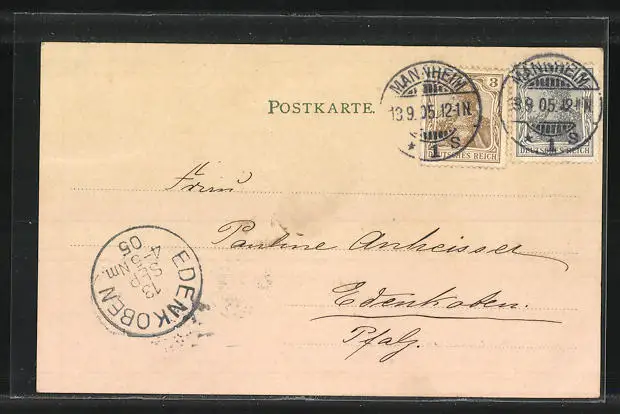 MANNHEIM
13.9.05.12-1N
* 1 S
3
DEUTSCHES REICH
MANNHEIM
13.9.05.12-1N
* 1 S
DEUTSCHES REICH
POSTKARTE.
Frau
Pauline Anheisser
Edenkoben.
Pfalz.
EDENKOBEN
13
SEP
05
Nm.